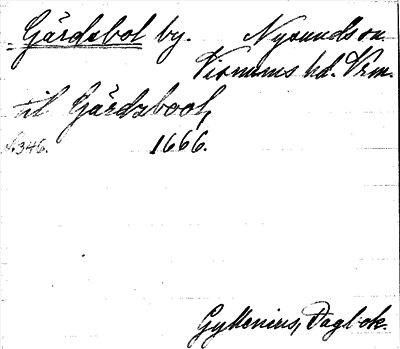 Gårdsbol by. Nysunds sn.
Visnums hd. Vrm.
til Gårdzbool,
s. 346. 1666.
Gyllenius, Dagbok.